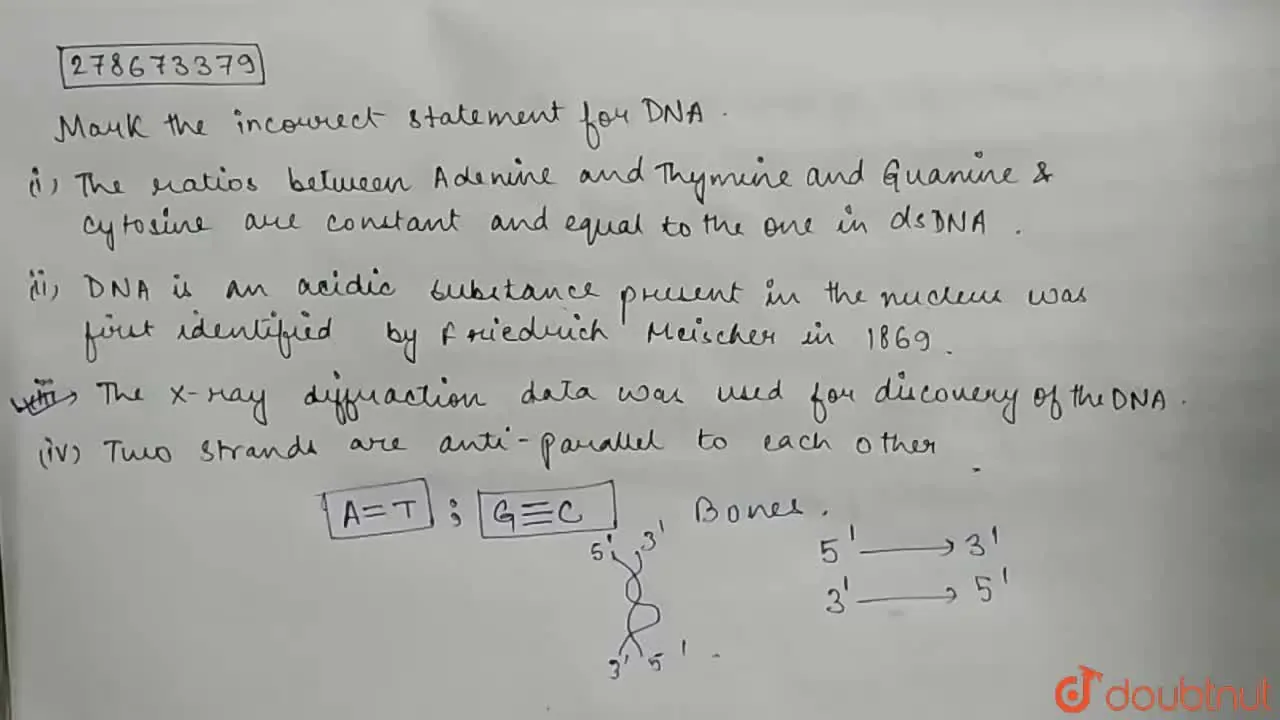 278673379
Mark the incorrect statement for DNA.
(i) The ratios between Adenine and Thymine and Guanine &
cytosine are constant and equal to the one in dsDNA.
(ii) DNA is an acidic substance present in the nucleus was
first identified by Friedrich Meischer in 1869.
(iii) The X-ray diffraction data was used for discovery of the DNA.
(iv) Two strands are anti-parallel to each other.
A=T ; G≡C Bones.
5' 3'
5' → 3'
3' → 5'
3' 5'
doubtnut